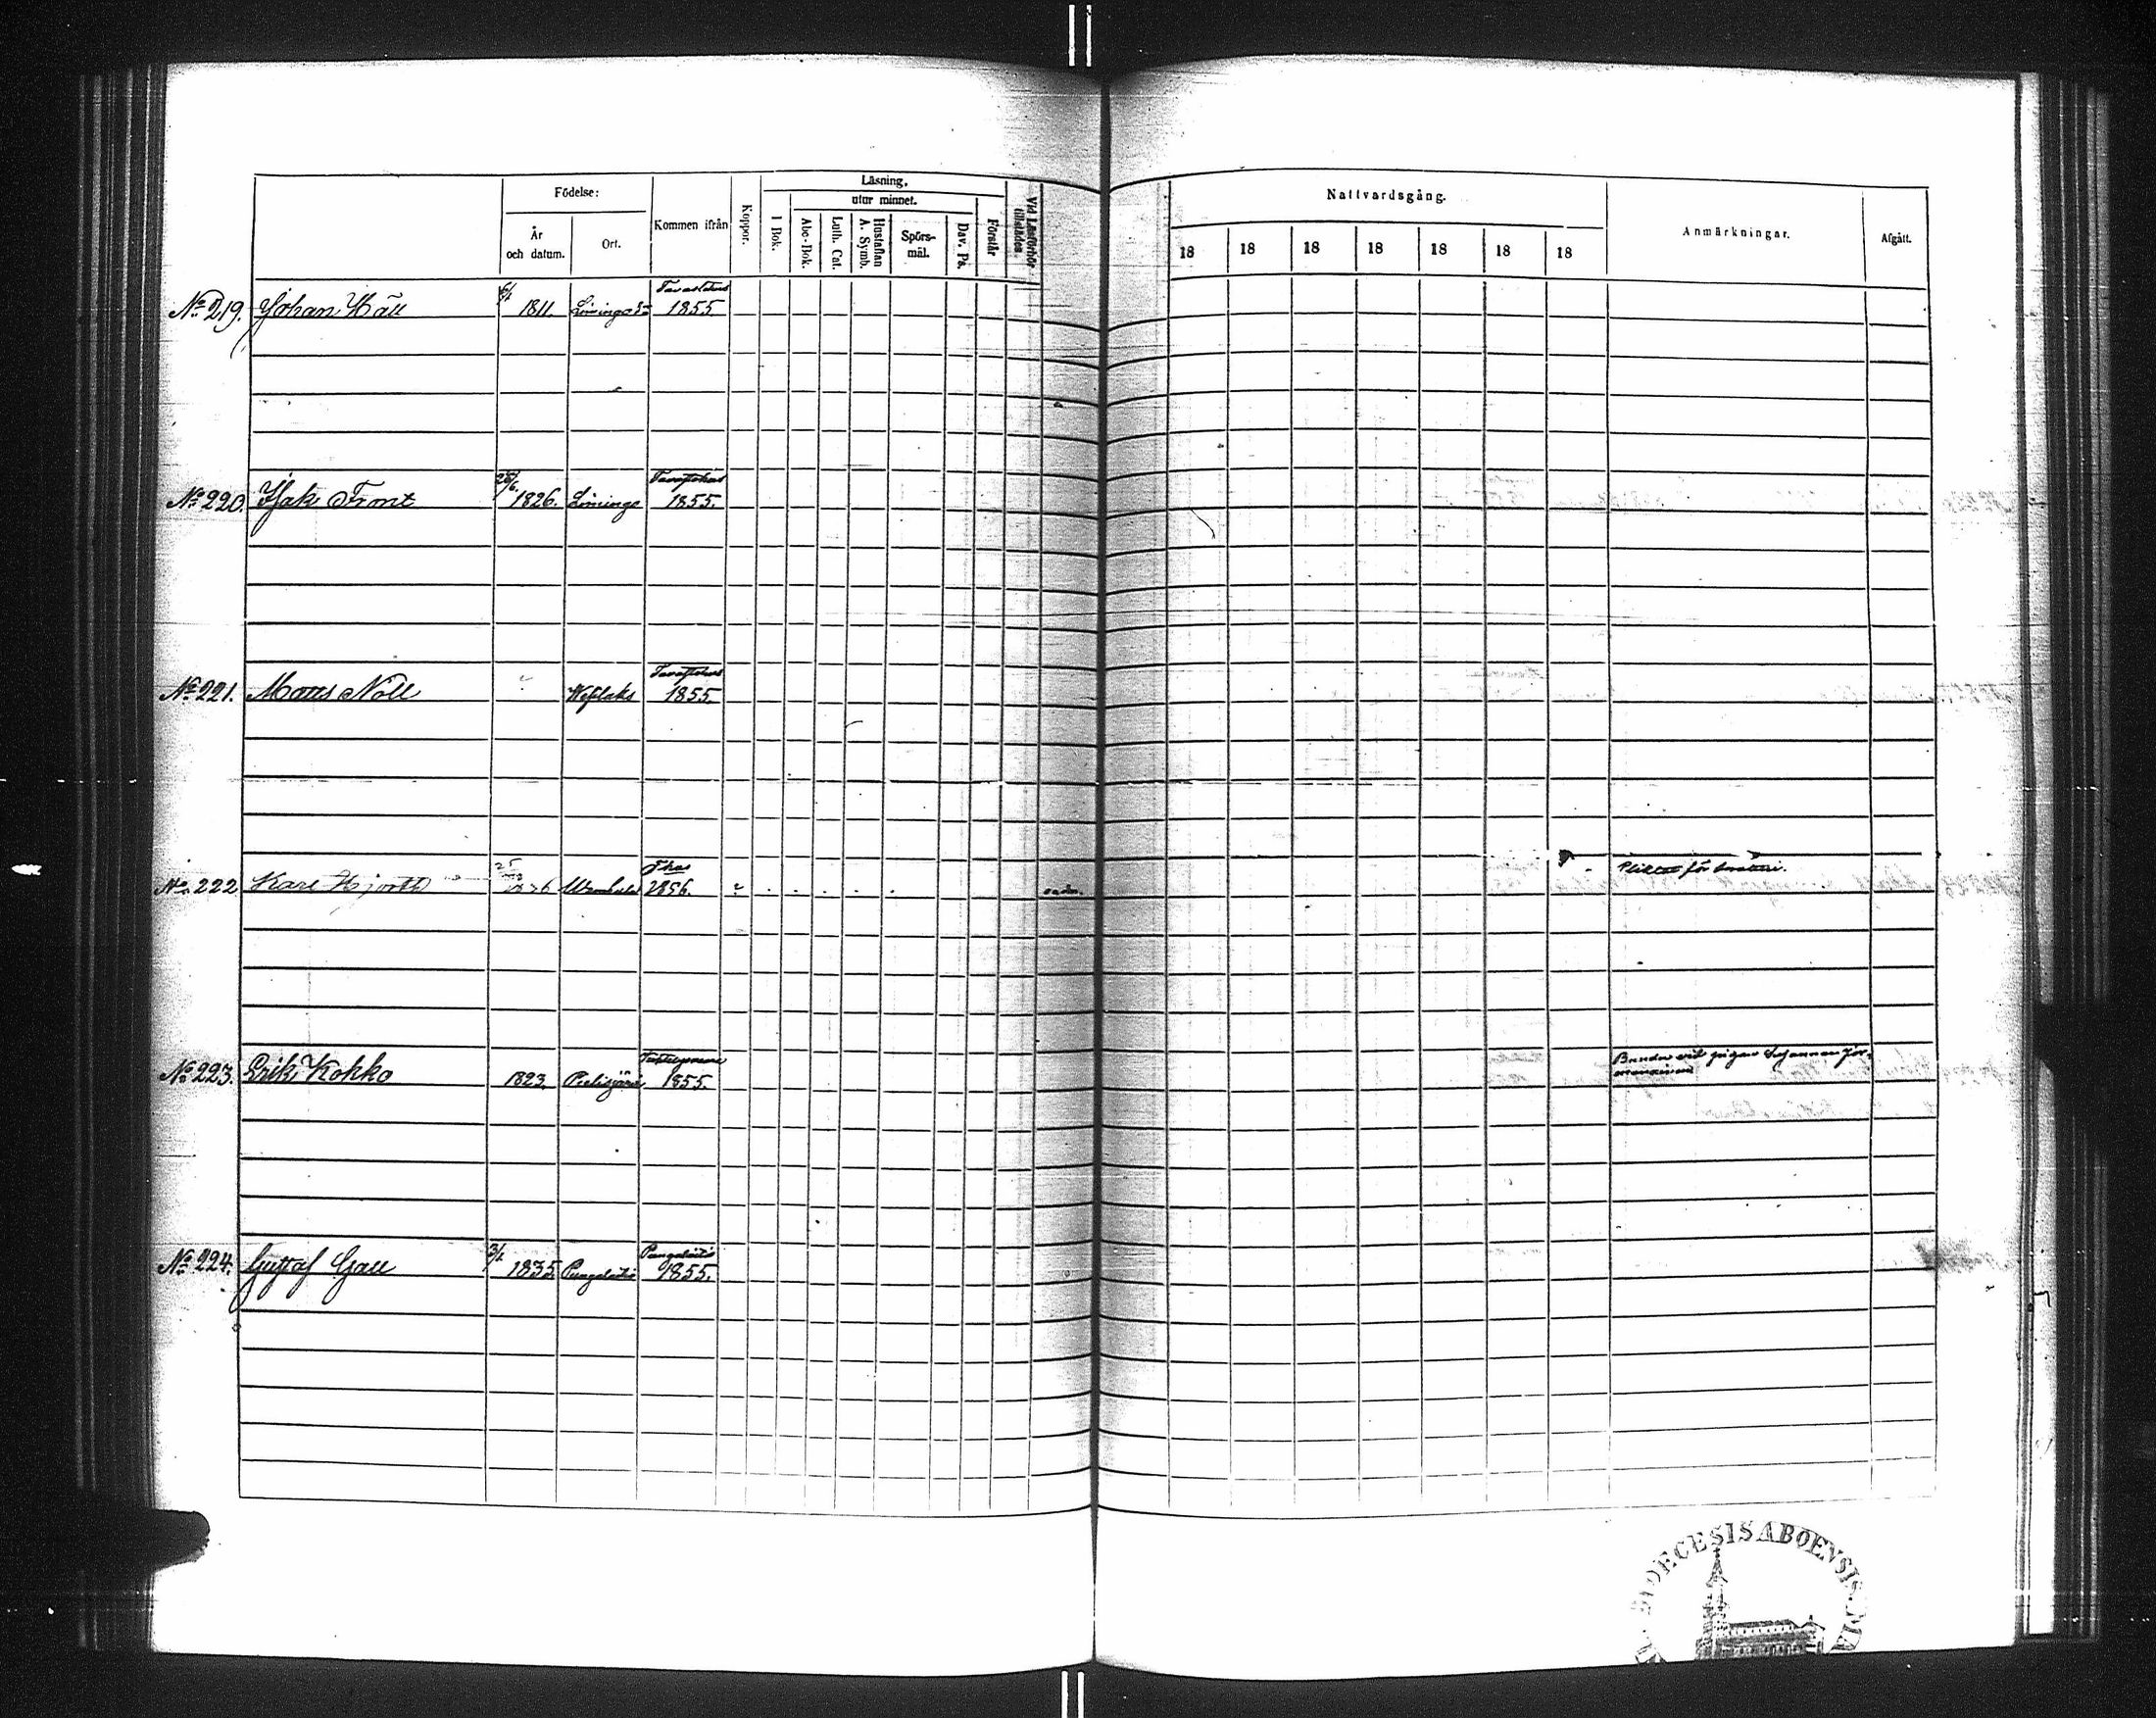 Födelse:
År och datum.
Ort.
Kommen ifrån
Koppor.
Läsning,
utur minnet.
I Bok.
Abc-Bok.
Luth. Cat.
Hustaflan A. Symb.
Spörs-mål.
Dav. Ps.
Förstår
Vid Läsförhör tillstädes.
Nattvardsgång.
18 18 18 18 18 18 18
Anmärkningar.
Afgått.
No 219. Johan Häll 6/1 1811. Limingo Tavastehus 1855
No 220. Isak Front 1826. Limingo Tavastehus 1855.
No 221. Matts Noll Keflaks Tavastehus 1855.
No 222 Karl Hjorth 25 Thus 1856.
Pliktat för
No 223. Erik Kokko 1823. Pielisjärvi 1855.
vid pigan Susanna
No 224. Gustaf Gall 3/1 1835. Pungalaitio Pungalaitio 1855.
DIOECESIS ABOENSIS